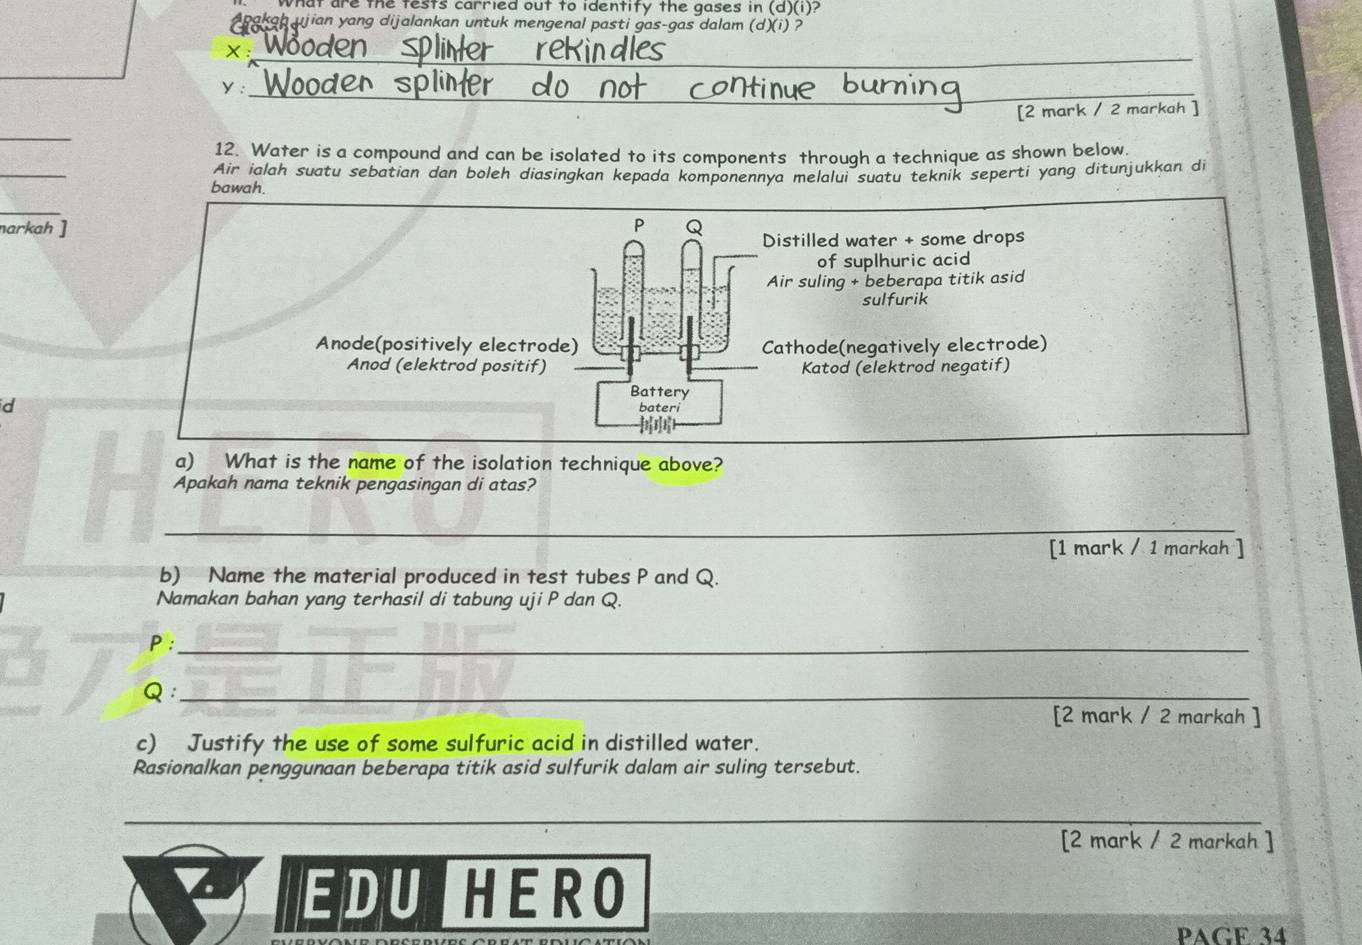 What are the tests carried out to identify the gases in (d)(i)?
Apakah ujian yang dijalankan untuk mengenal pasti gas-gas dalam (d)(i) ?
Glowing
X : Wooden splinter rekindles
Y : Wooden splinter do not continue burning
[2 mark / 2 markah ]
12. Water is a compound and can be isolated to its components through a technique as shown below.
Air ialah suatu sebatian dan boleh diasingkan kepada komponennya melalui suatu teknik seperti yang ditunjukkan di
bawah.
markah ]
P Q
Distilled water + some drops
of suplhuric acid
Air suling + beberapa titik asid
sulfurik
Anode(positively electrode)
Anod (elektrod positif)
Cathode(negatively electrode)
Katod (elektrod negatif)
Battery
bateri
id
HERO
a) What is the name of the isolation technique above?
Apakah nama teknik pengasingan di atas?
[1 mark / 1 markah ]
b) Name the material produced in test tubes P and Q.
Namakan bahan yang terhasil di tabung uji P dan Q.
]
P :
色才是正版
Q :
[2 mark / 2 markah ]
c) Justify the use of some sulfuric acid in distilled water.
Rasionalkan penggunaan beberapa titik asid sulfurik dalam air suling tersebut.
[2 mark / 2 markah ]
EDU HERO
EVERYONE DESERVES GREAT EDUCATION
PAGE 34